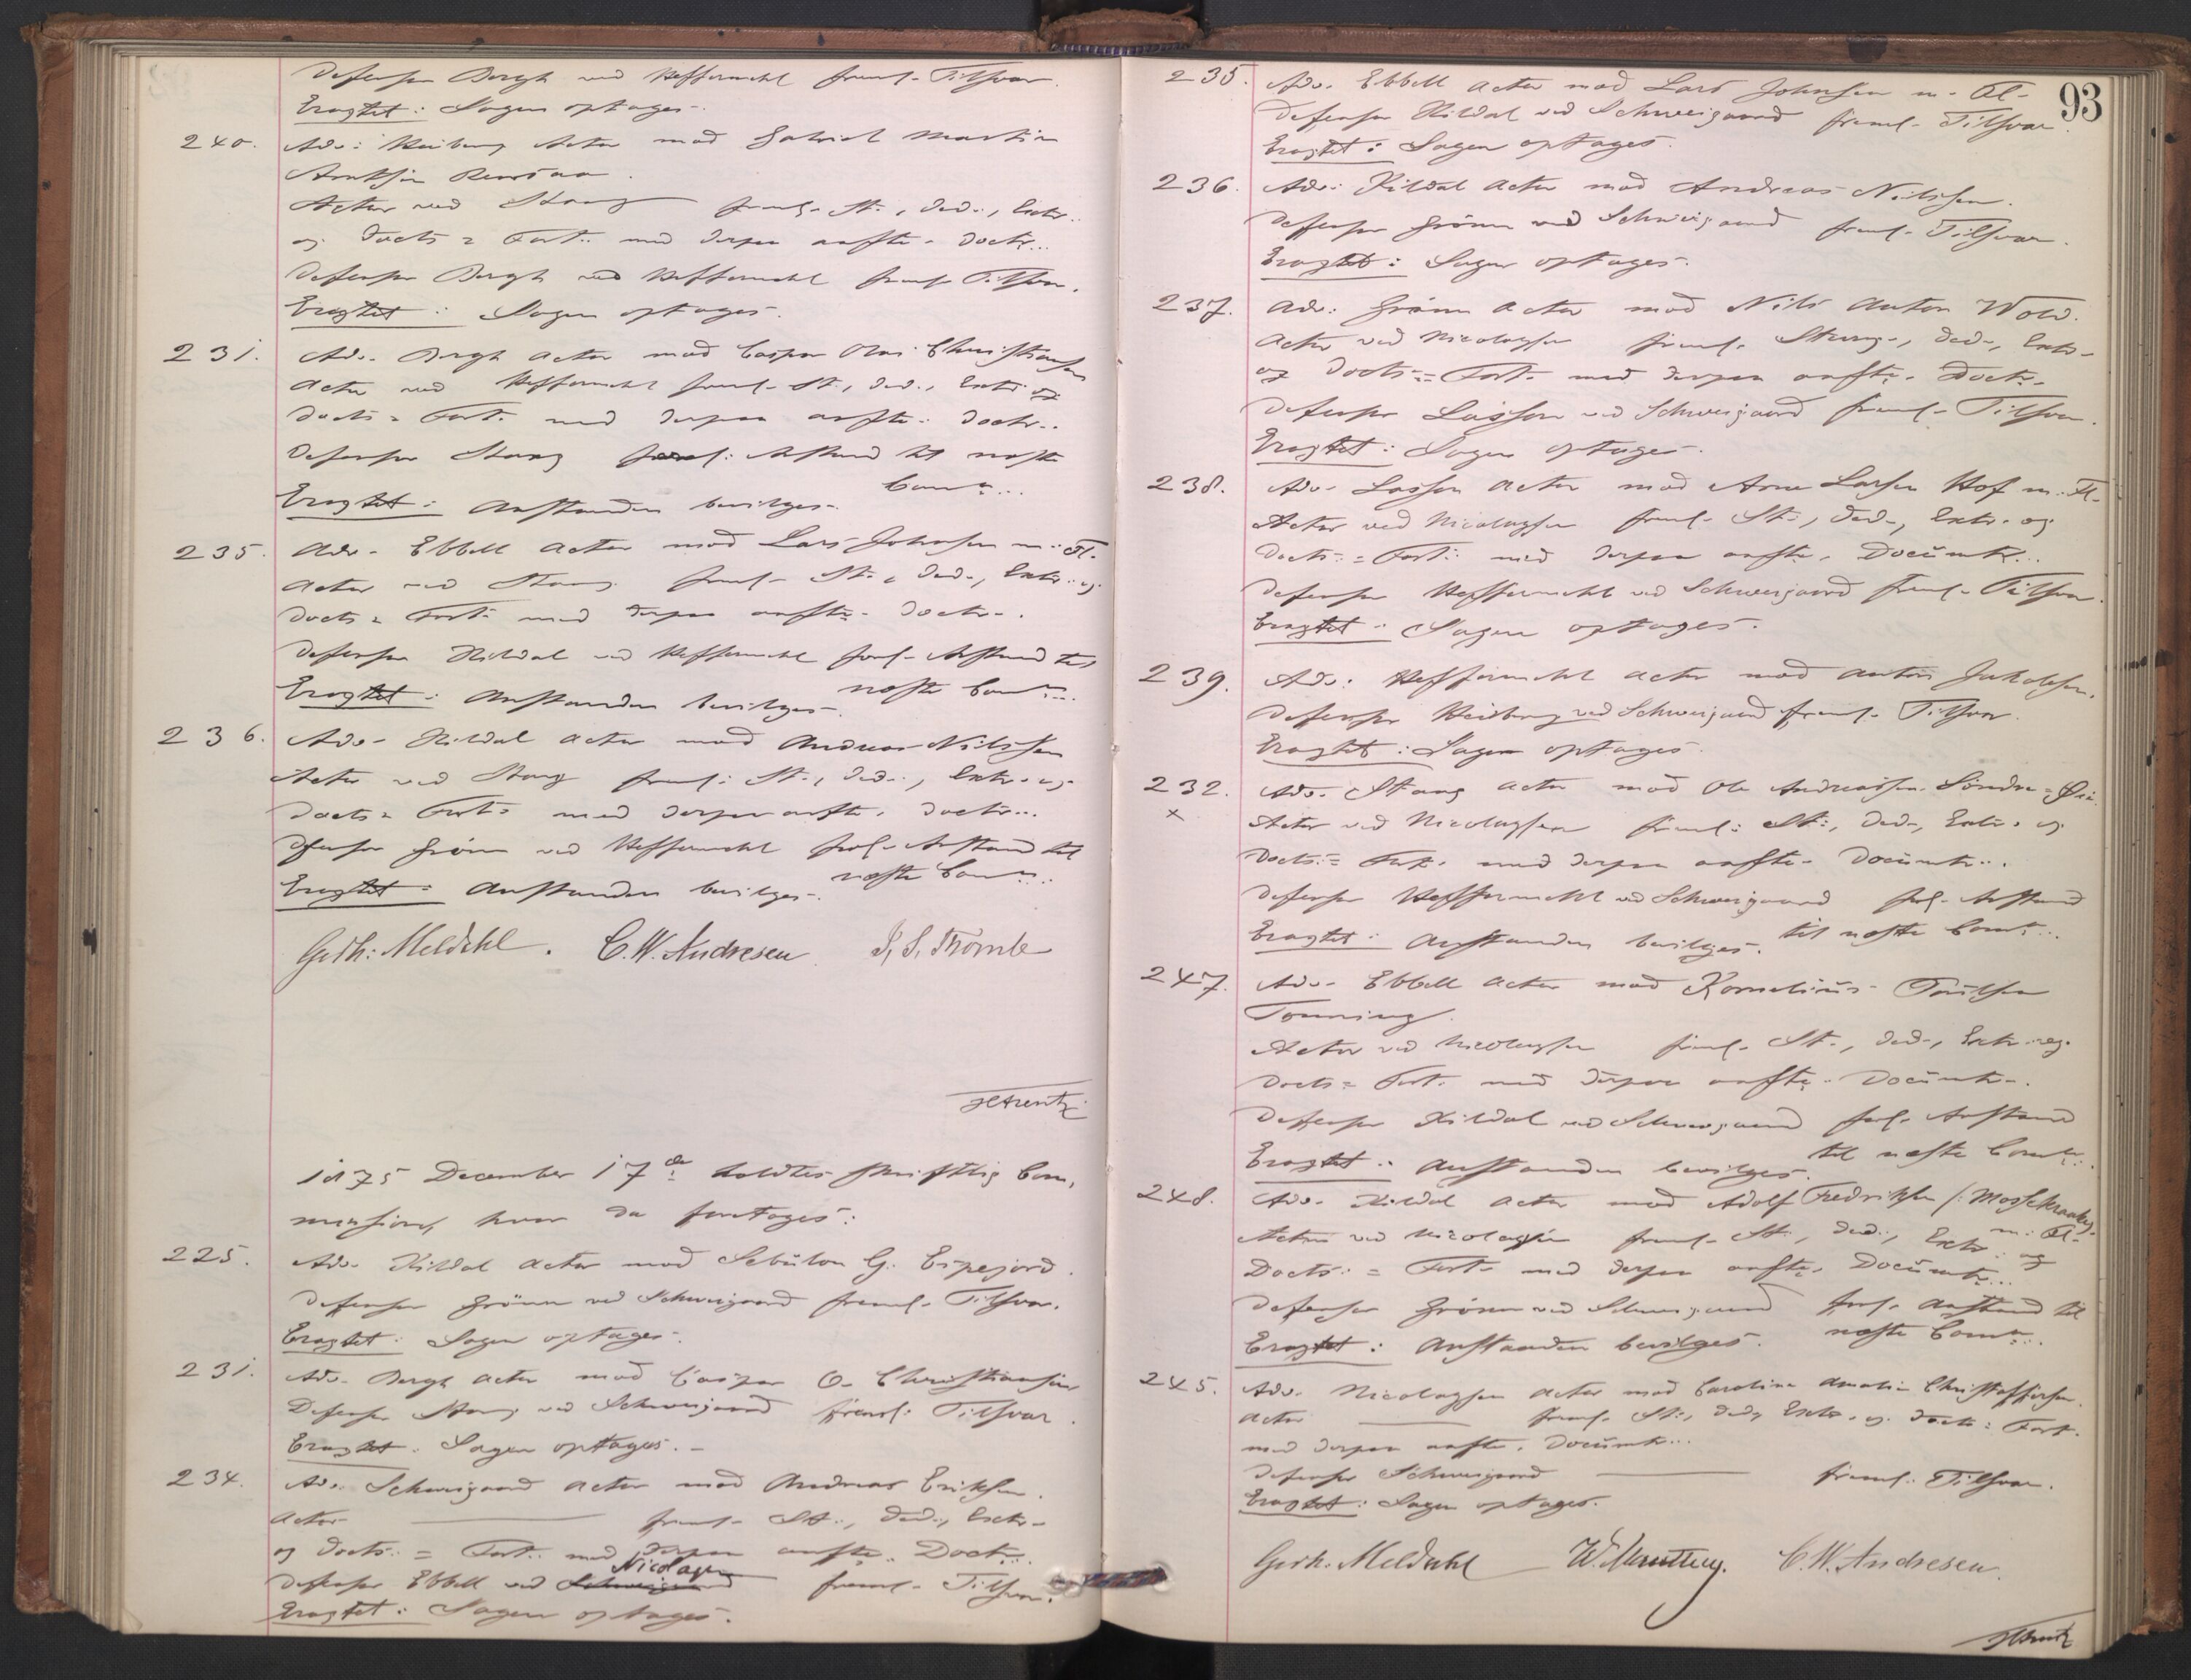 Defensor Bergh ved Heffermehl freml- Tilsvar.
Eragtet: Sagen optages-.
240. Adv: Heiberg Actor mod Gabriel Martin
Arntsen
Actor ved Stang freml- St., Ded., Extr..
og Docts = Fort.. med derpaa anfte- Doctr...
Defensor Bergh ved Heffermehl freml- Tilsvar.
Eragtet: Sagen optages.
231. Adv. Bergh Actor mod Casper Olai Christiansen
Actor ved Heffermehl freml- St., Ded., Extr. og
Docts = Fort. med derpaa anfte: Doctr..
Defensor Stang forl: Anstand til næste
Eragtet: Anstanden bevilges-. Comn...
235. Adv- Ebbell Actor mod Lars Johnsen m: Fl-
Actor ved Stang freml- St., Ded-, Extr.. og
Docts = Fort- med derpaa anfte- Doctr-.
Defensor Kildal ved Heffermehl forl- Anstand til
Eragtet: Anstanden bevilges-. næste Comn...
236. Adv- Kildal Actor mod Andreas Nilssen
Actor ved Stang freml: St., Ded-., Extr- og
Docts = Fort- med derpaa anfte. Doctr...
Defensor Grönn ved Heffermehl forl- Anstand til
Eragtet: Anstanden bevilges-. næste Comn...
Gerh: Meldahl. C.W. Andresen J. S. Thomle
HArentz
1875 December 17de holdtes skriftlig Com-
mission, hvor da foretoges:
225. Adv- Kildal Actor mod Sebulon G. Espejord.
Defensor Grönn ved Schweigaard freml- Tilsvar.
Eragtet: Sagen optages-.
231. Adv- Bergh Actor mod Casper O- Christiansen
Defensor Stang ved Schweigaard freml: Tilsvar.
Eragtet. Sagen optages.-
234. Adv. Schweigaard Actor mod Andreas Eriksen.
Actor freml- St.., Ded-, Extr-
og Docts.. = Fort.. med derpaa anfte.. Doctr...
Nicolaysen
Defensor Ebbell ved Schweigaard freml- Tilsvar.
Eragtet: Sagen optages-.
93
235. Adv- Ebbell Actor mod Lars Johnsen m- Fl-
Defensor Kildal ved Schweigaard freml- Tilsvar
Eragtet: Sagen optages.
236. Adv: Kildal Actor mod Andreas Nilssen.
Defensor Grönn ved Schweigaard freml- Tilsvar.
Eragtet: Sagen optages-.
237. Adv: Grönn Actor mod Nils Anton Wold.
Actor ved Nicolaysen freml- Stevng-, Ded-, Extr-
og Docts-= Fort- med derpaa anfte- Doctr-
Defensor Lasson ved Schweigaard freml- Tilsvar.
Eragtet: Sagen optages-.
238. Adv- Lasson Actor mod Arne Larsen Hof m. Fl-
Actor ved Nicolaysen freml- St-, Ded-, Extr- og
Docts-= Fort- med derpaa anfte. Documtr...
Defensor Heffermehl ved Schweigaard freml- Tilsvar.
Eragtet: Sagen optages-.
239. Adv: Heffermehl Actor mod Anton Jakobsen.
Defensor Heiberg ved Schweigaard freml- Tilsvar.
Eragtet: Sagen optages.
232. Adv- Stang Actor mod Ole Andreassen Söndre=
x Actor ved Nicolaysen freml: St:, Ded-, Extr- og
Docts:= Fort- med derpaa anfte- Documtr...
Defensor Heffermehl ved Schweigaard forl- Anstand
Eragtet: Anstanden bevilges-. til næste Comn...
247. Adv- Ebbell Actor mod Kornelius Paulsen
Tonning.
Actor ved Nicolaysen freml- St-, Ded-, Extr- og
Docts= Fort- med derpaa anfte- Documtr-.
Defensor Kildal ved Schweigaard forl- Anstand
Eragtet: Anstanden bevilges. til næste Comn...
248. Adv- Kildal Actor mod Adolf Fredriksen /:
m: Fl-
Actor ved Nicolaysen freml- St-, Ded-, Extr- og
Docts:= Fort- med derpaa anfte. Documtr...
Defensor Grönn ved Schweigaard forl- Anstand til
Eragtet: Anstanden bevilges. næste Comn...
245. Adv. Nicolaysen Actor mod Caroline Amalie Christoffersen.
Actor freml- St-, Ded-, Extr- og Docts: Fort-
med derpaa anfte. Documtr...
Defensor Schweigaard freml: Tilsvar.
Eragtet: Sagen optages.
Gerh. Meldahl C.W. Andresen.
HArentz